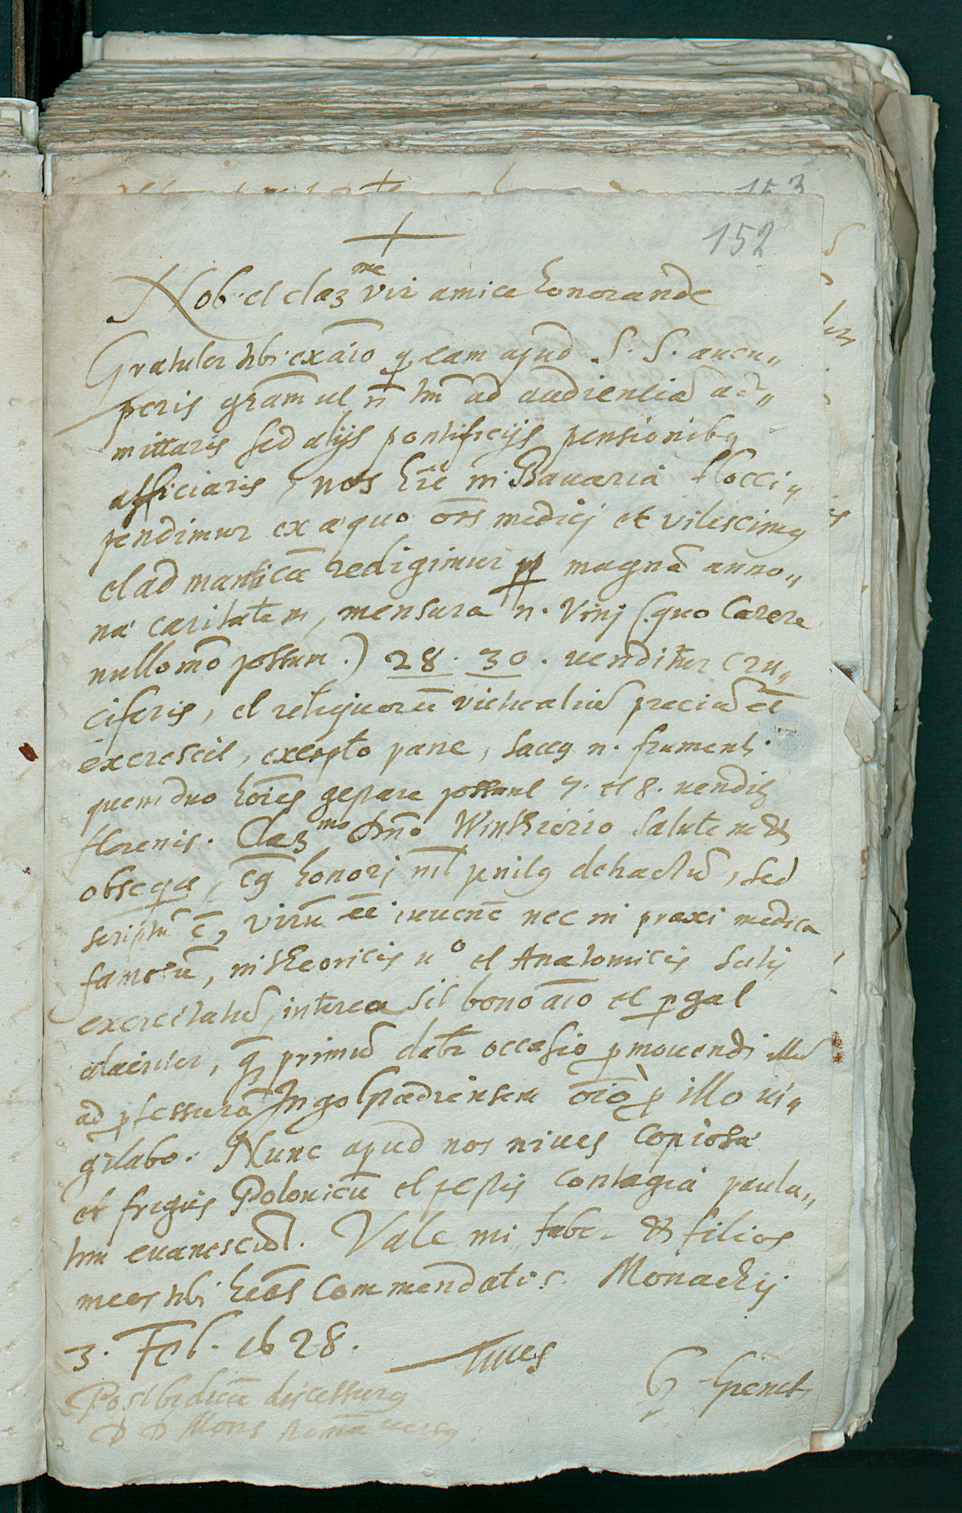 153
152
Nob. et claz me vir amice honorande
Gratulor tibi ex aīo q eam apud S. S. aucu„
peris grãm ut ñ tm̄ ad audientiã ad„
mittaris sed alijs pontificijs pensionibq
afficiaris, nos hīc in Bavaria flocci„
pendimur ex æquo oēs medicj et vilescimq
et ad manticã redigimur pp magnã anno„
næ caritatem, mensura n. vinj (quo carere
nullo mō possum.) 28. 30. venditur cru„
ciferis, et reliquorũ victualiũ preciũ
excrescit, excepto pane, saccq n. frumenti
quem duo hoīes gestare possunt 7. et 8. vendiṫ
florenis. Claz mo Dnō Winthierio salutem &
obsequia, eq honorj nil penitq detractũ, sed
scriptũ ē, virũ eē iuuenē nec in praxi medica
famosũ, in theoricis uo et Anatomicis satis
exercitatũ, interea sit bono aīo et pgat
alacriter, q primũ dabṫ occasio pmouendi illũ
ad pfessurã Ingolstadiensem oīo p illo vi„
gilabo. Nunc apud nos niues copiosæ
et frigus Polonicũ et pestis contagia paula„
tim euanescũt. Vale mi fabe. & filios
meos tibi hēas commendatos. Monachij
3. Feb. 1628.
Tuus
Postbiduũ discessurq
D D Mons Romã versq.